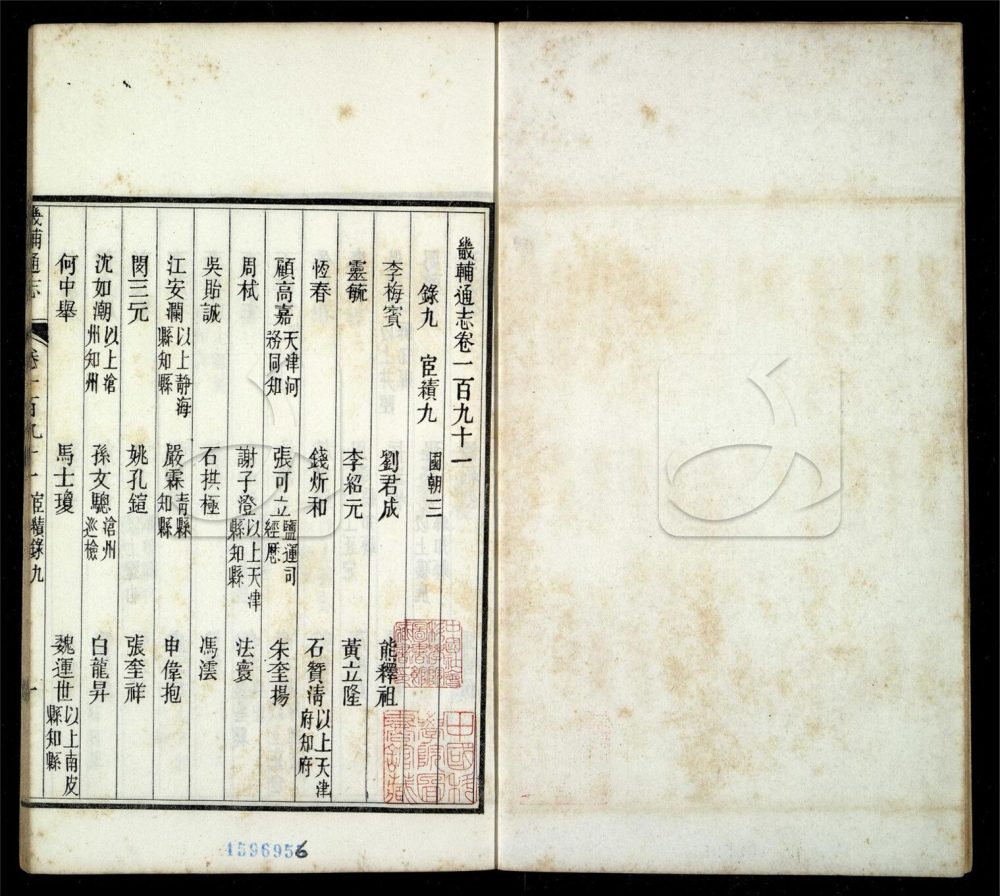 畿輔通志卷一百九十一
錄九 宦績九 國朝三
李梅賓 劉君成 熊繹祖
靈毓 李紹元 黃立隆
恆春 錢炘和 石贊清以上天津府知府
顧高嘉天津河務同知 張可立鹽運司經歷 朱奎揚
周栻 謝子澄以上天津縣知縣 法寰
吳貽誠 石拱極 馮澐
江安瀾以上靜海縣知縣 嚴霖青縣知縣 申偉抱
閔三元 姚孔鍹 張奎祥
沈如潮以上滄州知州 孫文驄滄州巡檢 白龍昇
何中舉 馬士瓊 魏運世以上南皮縣知縣
畿輔通志 卷一百九十一 宦績錄九 一
4596956